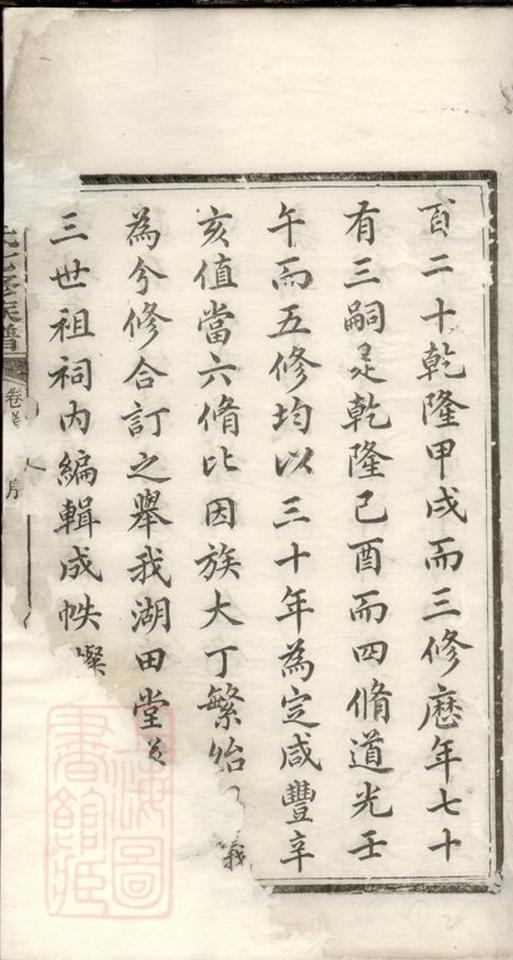 百二十乾隆甲戌而三修歷年七十
有三嗣是乾隆己酉而四脩道光壬
午而五修均以三十年為定咸豐辛
亥值當六脩比因族大丁繁始議
為分修合訂之舉我湖田堂
三世祖祠內編輯成帙燦
族譜
卷首
序
上海圖書館藏